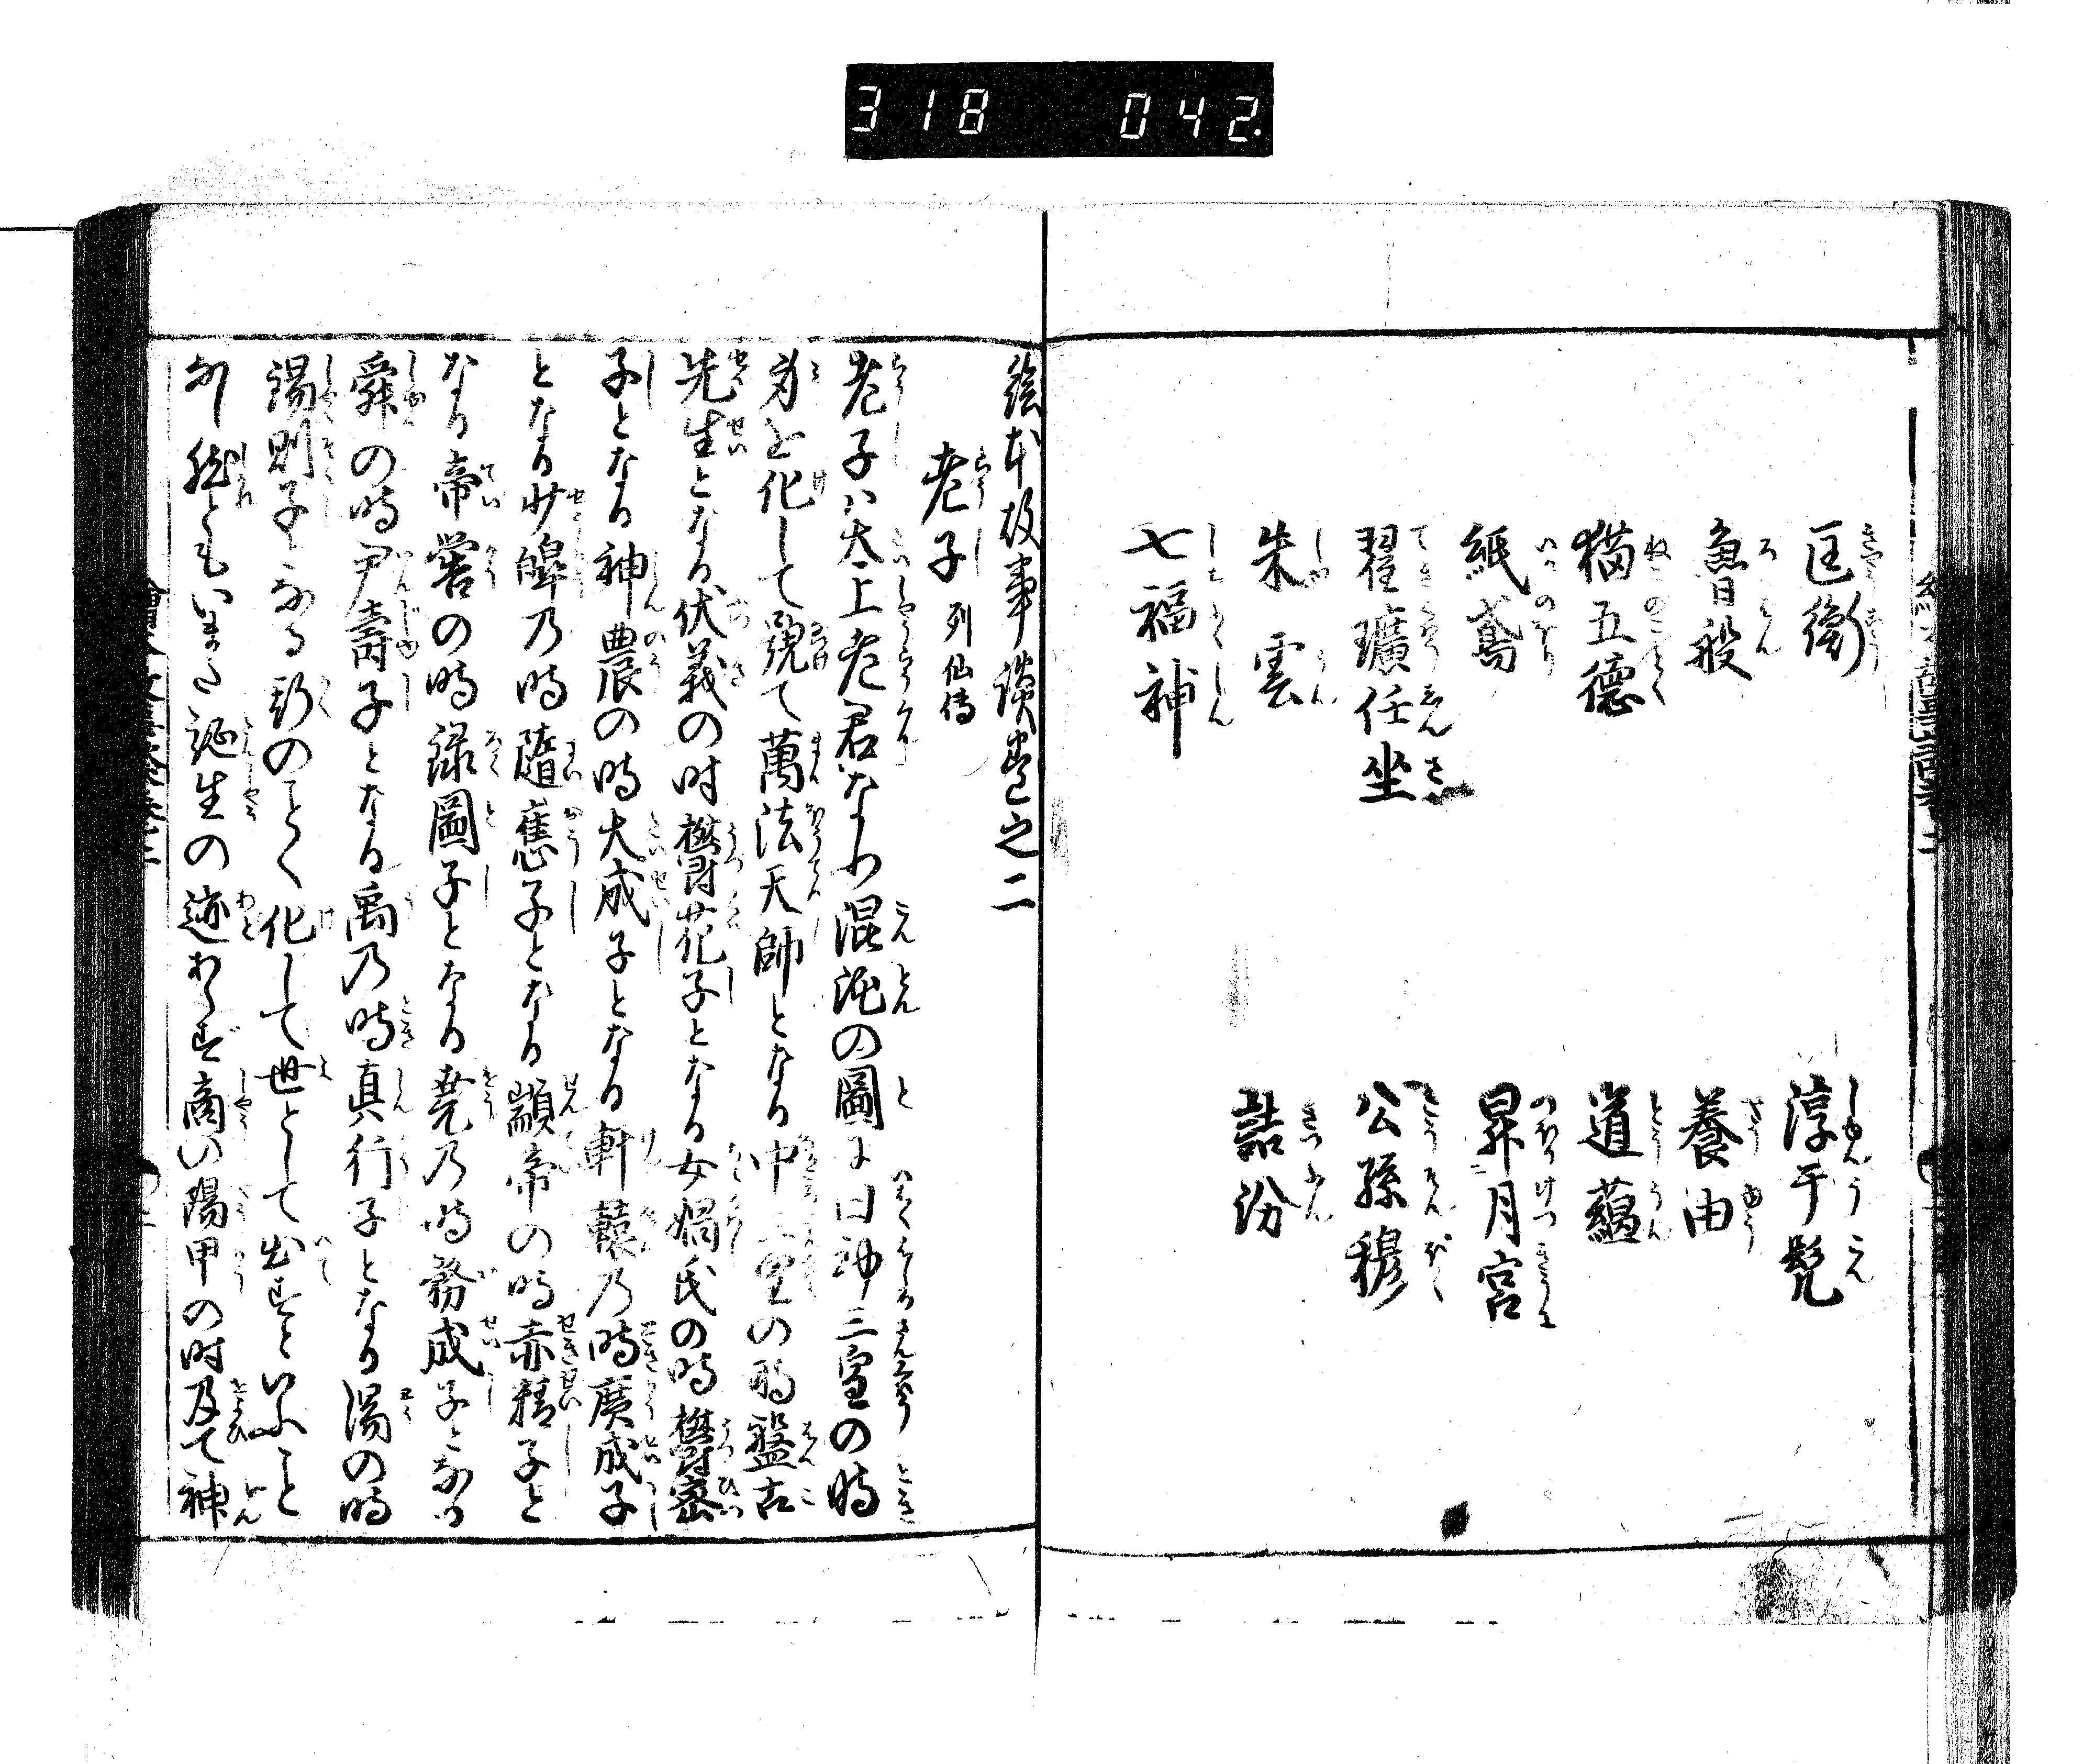 318 042.
匡衡
淳于髠
魯般
養由
猫五德
道蘊
紙鳶
昇月宮
翟璜任坐
公孫穆
朱雲
詰汾
七福神
絵本故事談巻之二
老子 列仙傳
老子ハ太上老君なり混沌の圖に曰初三皇の時
身を化して號て萬法天師となる中三皇の時盤古
先生となる伏羲の时欝花子となる女媧氏の時欝密
子となる神農の時大成子となる軒轅乃時廣成子
となる少皞乃時隨應子となる顓帝の時赤精子と
なる帝嚳の時録圖子となる堯乃時務成子となる
舜の時尹壽子となる禹乃時真行子となる湯の時
錫則子となる
のことく化して世として出ずといふこと
なし然ともいまた誕生の迹あらず商の陽甲の时及て神